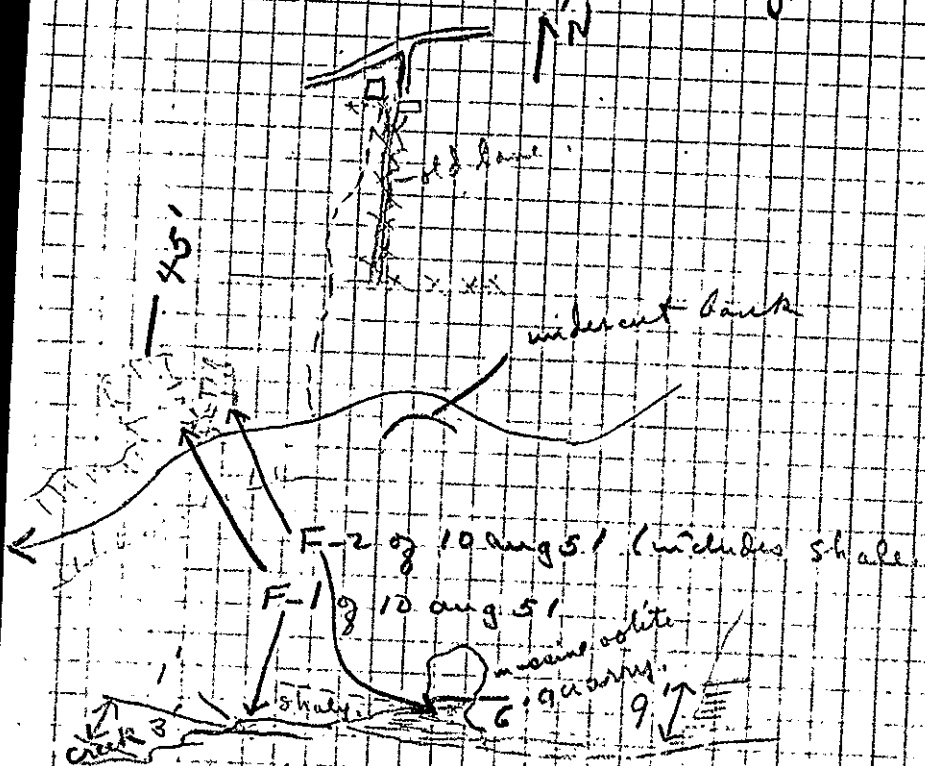 N
old lane
45'
undercut bank
F-2 of 10 aug 51 (includes shale.
F-1 of 10 aug 51
massive oolite
quarry.
1'
shaly.
6'
9'
creek 3'